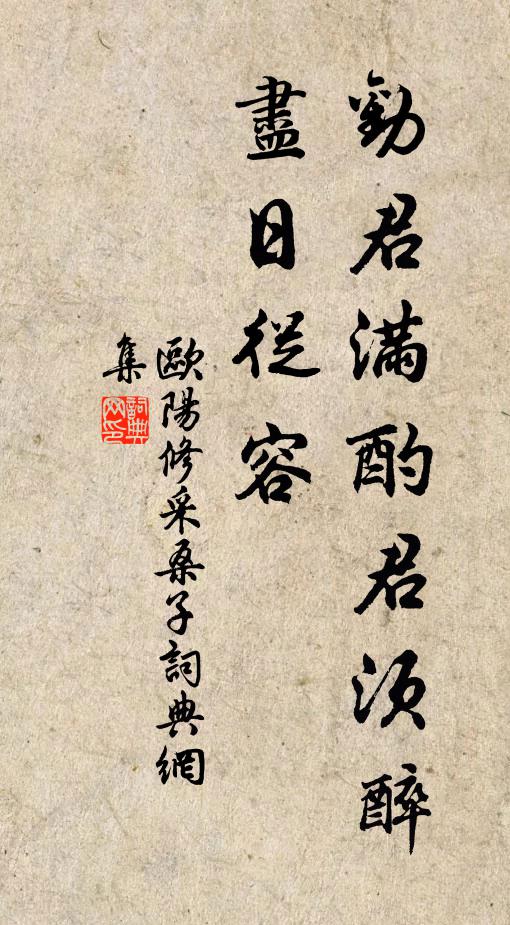 勸君滿酌君須醉
盡日從容
歐陽修采桑子詞典網
集
詞典
网印